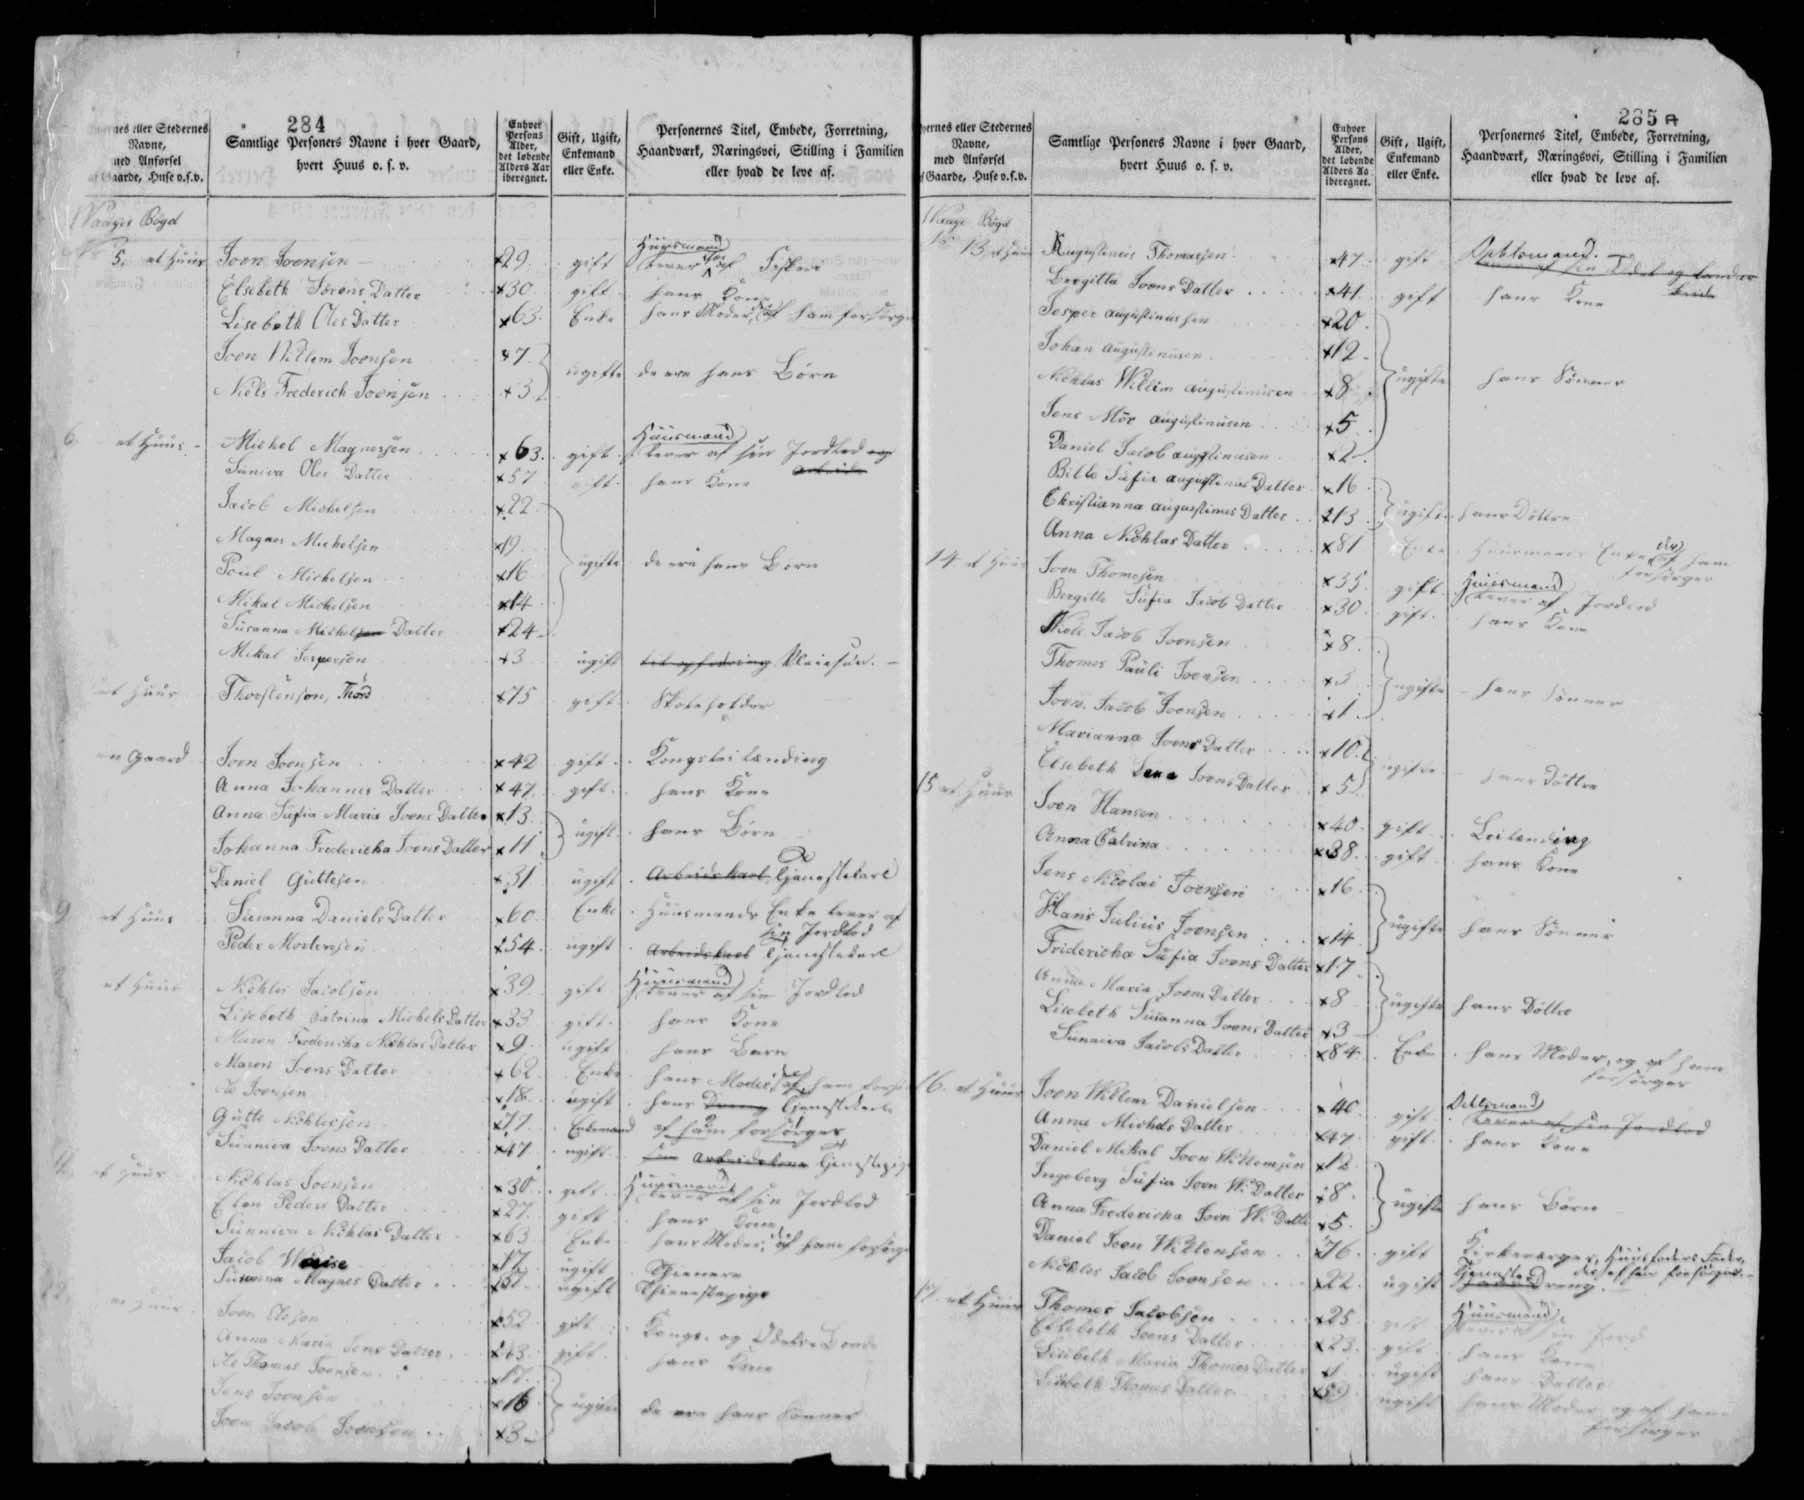 284
Stedernes
Navne,
med Anførsel
af Gaarde, Huse o.s.v.
Samtlige Personers Navne i hver Gaard,
hvert Huus o. s. v.
Enhver
Persons
Alder,
det løbende
Alders Aar
iberegnet.
Gift, Ugift,
Enkemand
eller Enke.
Personernes Titel, Embede, Forretning,
Haandværk, Næringsvei, Stilling i Familien
eller hvad de leve af.
Waages Bögd
5. et Huus Joen Joensen 29. gift Huusmand lever af Fiskerie
Elsebeth Sörens Datter 30 gift hans Kone
Lisebeth Oles Datter 63. Enke hans Moder, af ham forsörges
Joen Willem Joensen 7 ugifte de ere hans Börn
Niels Frederich Joensen 3
6. et Huus Michel Magnesen 63. gift Huusmand lever af sin Jordlod og Arbeide
Suniva Oles Datter 57 gift hans Kone
Jacob Michelsen 22
Magnes Michelsen 19 ugifte de ere hans Börn
Poul Michelsen 16
Mikal Michelsen 14
Susanna Michelsen Datter 24
Mikal Jespersen 3 ugift
et Huus Thorstensen, 75 gift Skoleholder
en Gaard Joen Joensen 42 gift Kongsleilænding
Anna Johannes Datter 47. gift hans Kone
Anna Sufia Maria Joens Datter 13
Johanna Fredericha Joens Datter 11 ugift hans Börn
Daniel Guttesen 31 ugift Arbeidskarl Tjenestekarl
9 et Huus Susanna Daniels Datter 60 Enke Huusmands Enke lever af sin Jordlod
Peder Mortensen 54 ugift Arbeidskarl Tjenestekarl
et Huus Nichlas Jacobsen 39 gift Huusmand lever af sin Jordlod
Lisebeth Catrina Michels Datter 33 gift hans Kone
Maren Fredericha Nichlas Datter 9 ugift hans Barn
Maren Joens Datter 62 Enke hans Moder, af ham
Joensen 18 ugift hans Dreng Tjenestekarl
Gutte Nichlesen 77 Enkemand af ham forsörges
Sunneva Joens Datter 47 ugift Tjenestepige
et Huus Nichlas Joensen 30 gift Huusmand lever af sin Jordlod
Elen Peders Datter 27. gift hans Kone
Sunneva Nichlas Datter 63 Enke hans Moder, af ham forsörges
Jacob 17 ugift Thienere
Susanna Magnes Datter ugift Thienestepige
Joen Olesen 52 gift Kongs- og Odels Bonde
Anna Maria Jens Datter 43 gift hans Kone
Ole Thomas Joensen
Jens Joensen 16 ugifte de ere hans Sönner
Joen Jacob Joensen 3
285
Stedernes
Navne,
med Anførsel
af Gaarde, Huse o.s.v.
Samtlige Personers Navne i hver Gaard,
hvert Huus o. s. v.
Enhver
Persons
Alder,
det løbende
Alders Aar
iberegnet.
Gift, Ugift,
Enkemand
eller Enke.
Personernes Titel, Embede, Forretning,
Haandværk, Næringsvei, Stilling i Familien
eller hvad de leve af.
Waage Bögd
13 et Huus Augustinus Thomasen 47 gift Odelsmand. lever af sin Odel og
Bergitta Joens Datter 41. gift hans Kone
Jesper Augustinussen 20
Johan Augustinusen 12
Nichlas Willem Augustinusen 8 ugifte hans Sönner
Jens Mör Augustinusen 5
Daniel Jacob Augustinusen 2
Bille Sufia Augustinus Datter 16
Christianna Augustinus Datter 13 ugifte hans Döttre
Anna Nichlas Datter 81 Enke Huusmands Enke af ham forsörges
14 et Huus Joen Thomesen 35 gift Huusmand lever af Jordlod
Bergitte Sufia Jacob Datter 30 gift hans Kone
Niels Jacob Joensen 8
Thomes Pauli Joensen ugifte hans Sönner
Joen Jacob Joensen 1
Marianna Joens Datter 10
Elsebeth Lena Joens Datter 5 ugifte hans Döttre
15 et Huus Joen Hansen 40 gift Leilending
Anna Catrina 38. gift hans Kone
Jens Nicolai Joensen 16
Hans Julius Joensen 14 ugifte hans Sönner
Fridericha Sufia Joens Datter 17
Anna Maria Joens Datter 8 ugifte hans Döttre
Lisebeth Susanna Joens Datter 3
Sunneva Jacobs Datter 84 Enke hans Moder, og af ham forsörges
16. et Huus Joen Willem Danielsen 40 gift Odelsmand lever af sin Jordlod
Anna Michels Datter 47 gift hans Kone
Daniel Mikal Joen Willemsen 12
Ingeborg Sufia Joen W. Datter 8 ugifte hans Börn
Anna Fredericha Joen W. Datter 5
Daniel Joen Willensen 76 gift Kirkeverger, Huusfaders Fader,
Nichles Jacob Joensen 22 ugift Tjeneste Dreng
17. et Huus Thomas Jacobsen 25 gift Huusmand lever af sin Jord
Elsebeth Joens Datter 23. gift hans Kone
Lisebeth Maria Thomas Datter 1 ugift hans Datter
Lisebeth Thomas Datter ugift hans Moder og af ham forsörges